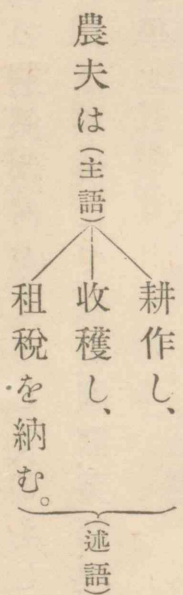 農夫は(主語)
耕作し、
收穫し、
租稅を納む。
(述語)